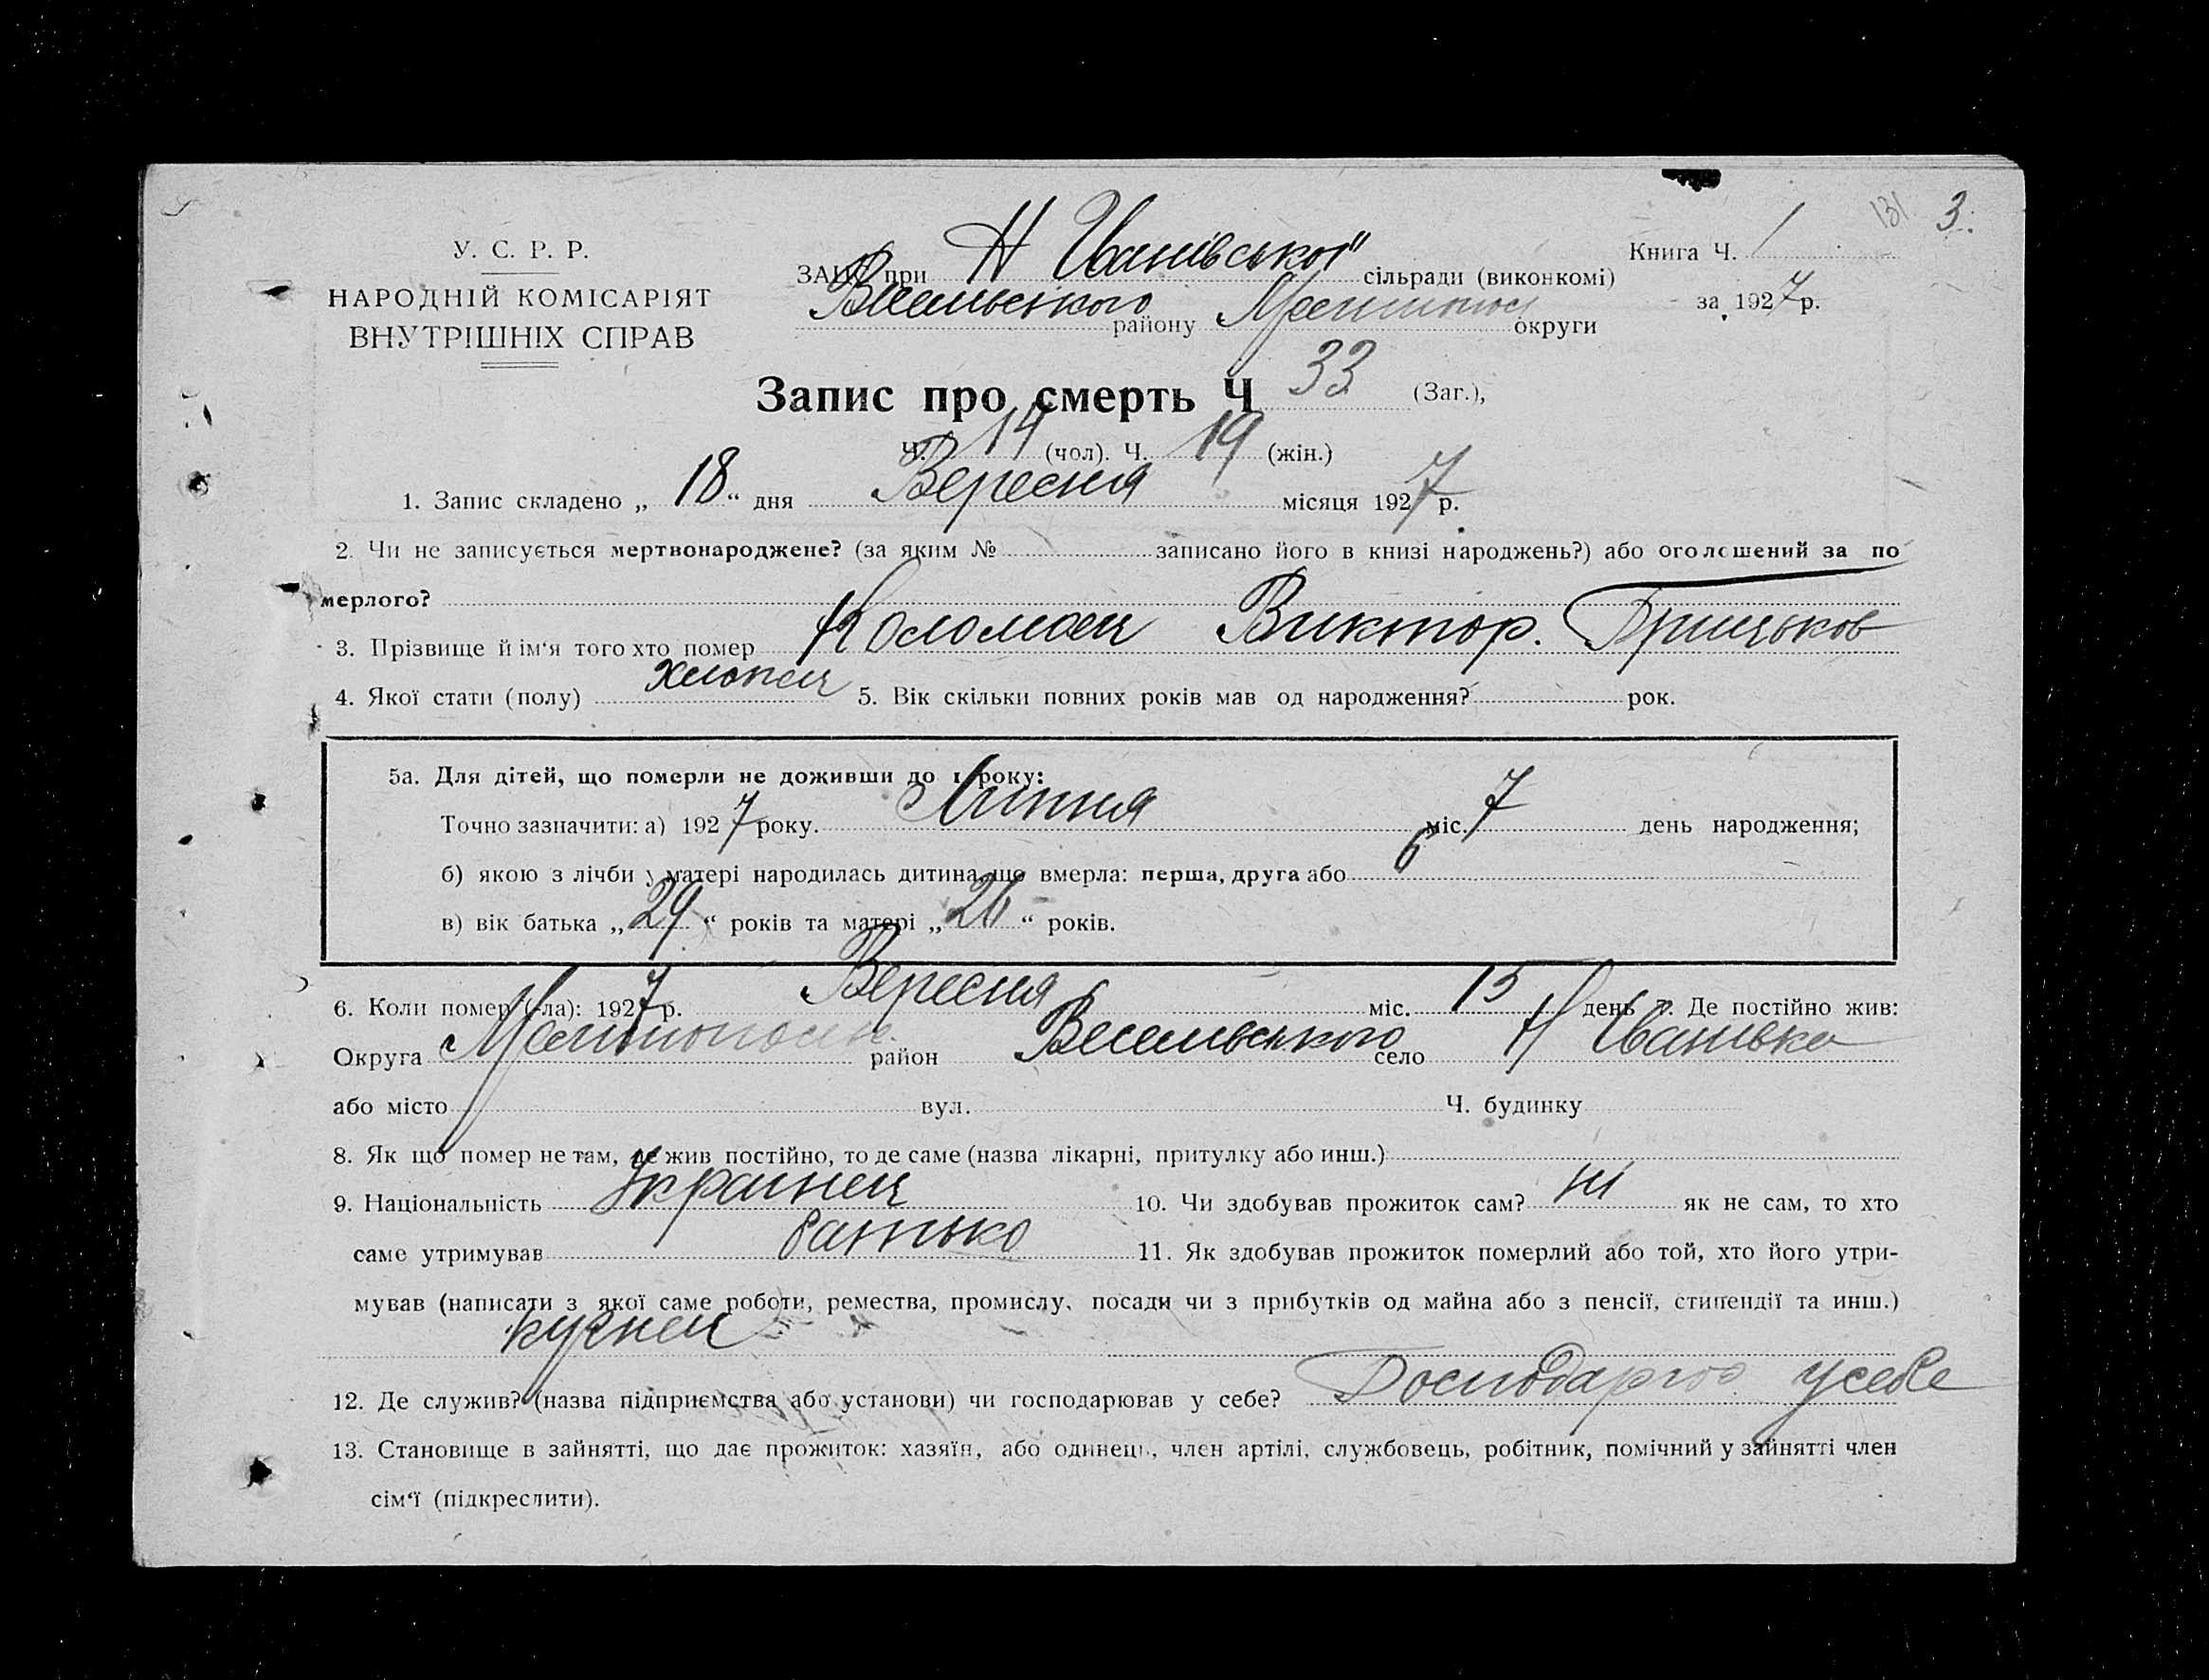 131 3.
У. С. Р. Р.
НАРОДНІЙ КОМІСАРІЯТ
ВНУТРІШНІХ СПРАВ
ЗАГС при Н Іванівської сільради (виконкомі)
Весельського району Мелитопол округи
Книга Ч. 1
за 1927 р.
Запис про смерть Ч 33 (Заг.),
Ч. 14 (чол). Ч. 19 (жін.)
1. Запис складено „ 18 “ дня Вересня місяця 1927 р.
2. Чи не записується мертвонароджене? (за яким № записано його в книзі народжень?) або оголошений за по
мерлого?
3. Прізвище й ім'я того хто помер Коломоец Виктор. Грицьков
4. Якої стати (полу) хлопец 5. Вік скільки повних років мав од народження? рок.
5а. Для дітей, що померли не доживши до 1 року:
Точно зазначити: а) 1927 року. Липня міс. 7 день народження;
б) якою з лічби у матері народилась дитина, що вмерла: перша, друга або 6
в) вік батька „ 29 “ років та матері „ “ років.
6. Коли помер (-ла): 1927 р. Вересня міс. 15 день 7. Де постійно жив:
Округа район Весельського село Н Іванівка
або місто вул. Ч. будинку
8. Як що помер не там, де жив постійно, то де саме (назва лікарні, притулку або инш.)
9. Національність Украинец 10. Чи здобував прожиток сам? ні як не сам, то хто
саме утримував батько 11. Як здобував прожиток померлий або той, хто його утри-
мував (написати з якої саме роботи, ремества, промислу, посади чи з прибутків од майна або з пенсії, стипендії та инш.)
кузнец
12. Де служив? (назва підприємства або установи) чи господарював у себе? Господарює усебе
13. Становище в зайнятті, що дає прожиток: хазяїн, або одинець, член артілі, службовець, робітник, помічний у зайнятті член
сім'ї (підкреслити).